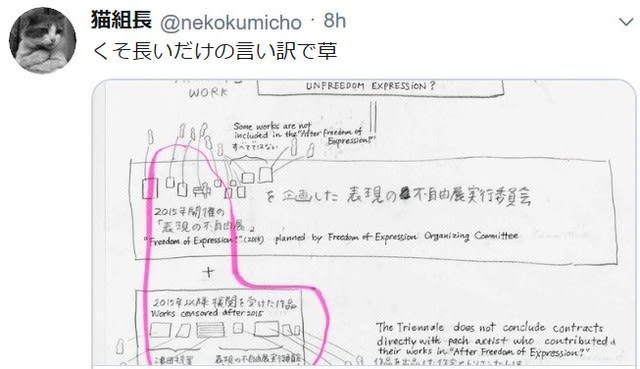 猫組長 @nekokumicho · 8h
くそ長いだけの言い訳で草
WORK
UNFREEDOM EXPRESSION?
Some works are not
included in the "After Freedom of
Expression?"
すべてではない
を企画した 表現の不自由展実行委員会
2015年開催の
「表現の不自由展」
"Freedom of Expression?" (2015) planned by Freedom of Expression Organizing Committee
+
2015年以降 検閲を受けた作品
Works censored after 2015
表現の不自由展実行委員会
The Triennale does not conclude contracts
directly with each artist who contributed
their works in "After Freedom of Expression?"